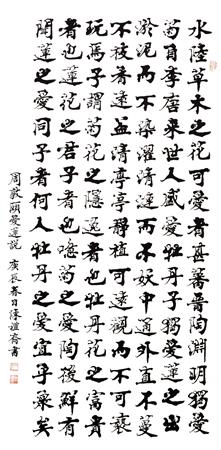 水陸草木之花可愛者甚蕃晉陶淵明獨愛
菊自李唐來世人盛愛牡丹予獨愛蓮之出
淤泥而不染濯清漣而不妖中通外直不蔓
不枝香遠益清亭亭静植可遠觀而不可褻
玩焉予謂菊花之隱逸者也牡丹花之富貴
者也蓮花之君子者也噫菊之愛陶後鮮有
聞蓮之愛同予者何人牡丹之愛宜乎衆矣
周敦頤愛蓮説 庚辰春日陳 書